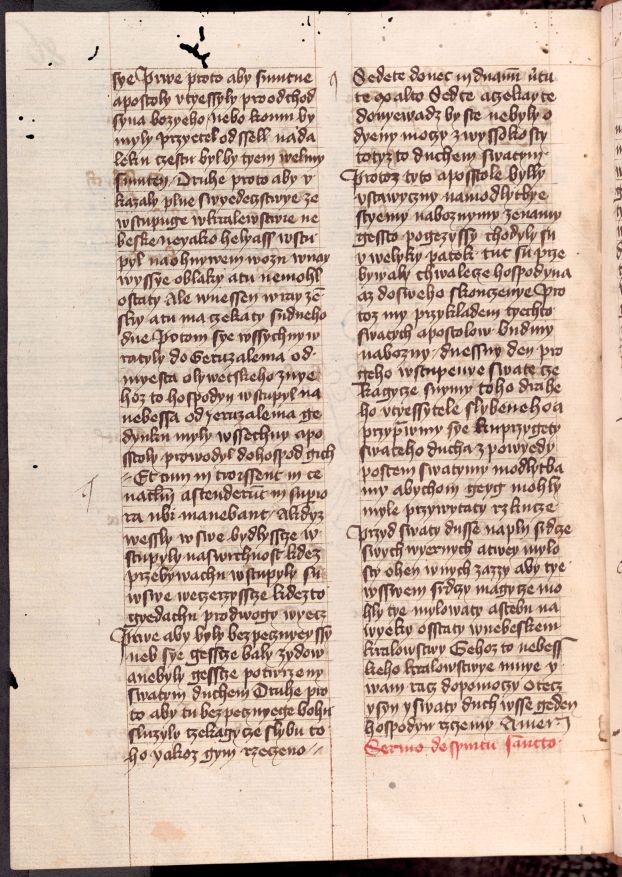 sye Prwe proto aby smutne
apostoly vtyessyly pro odchod
syna bozyeho nebo komu by
myly przyetel odssell nada
leku czestu byl by tyem welmy
smuten Druhe proto aby v
kazaly plne swyedeczstwye ze
wstupuge wkralewstwie ne
beske neyako helyass wstu
pyl na ohnywem wozu wnay
wyssye oblaky a tu nemohl
ostaty Ale wnessen w ray zē
sky a tu ma czekaty sudneho
dne Potom sye wssychny w
ratyly do Geruzalema od
myesta olywetskeho z nye
hoz to hospodyn wstupyl na
nebessa od yeruzalema ge
dynku myly wssechny apo
sstoly prowodyl do hospod gich
Et cum in troissent in ce
naculū ascenderūt in supio
ra ubi manebant A kdyz
wessly w swe bydlyssze w
stupyly na swrchnost kdez
przebywachu wstupyly su
w swe weczerzyssze kdezto
gyedachu pro dwogy wyecz
Prwe aby byly bezpecznyeyssy
neb sye gesscze baly zydow
a nebyly gessce potwrzeny
swatym duchem Druhe pro
to aby tu bezpecznyege bohu
sluzyly czekagycze slybu to
ho yakoz gym rzeczeno
Sedete donec induamī ūtu
te ex alto Sedte a czekayte
donyewadz by ste nebyly o
dyeny moczy z wyssokosty
totyz to duchem swatym
Protoz tyto aposstole byly
vstawyczny na modlytbye
styemy naboznymy zenamy
gessto pogezyssy chodyly su
v welyky patek tuc su prze
bywaly chwalecze hospodyna
az do sweho skonczenye Pro
toz my przykladem tyechto
swatych apostolow budmy
nabozny dnessny den pro
geho wstupenye swate cze
kagycze snymy toho drahe
ho vtyessytele slybeneho a
przyprawmy sye ku przygety
swateho ducha z powyedy
postem swatymy modlytba
my abychom geyg mohly
myle przywytaty rzkucze
Przyd swaty dusse naplň srdcze
swych wyernych a twey mylo
sty ohen wnych zazzy aby tye
wssiem srdczy magycze mo
hly tye mylowaty a stebu na
wyeky osstaty wnebeskem
kralowstwy Gehoz to nebess
keho kralowstwye mnye y
wam racz dopomoczy Otecz
y syn y swaty duch wsse geden
hospodyn rzczemy Amen
Sermo de spiritu sancto